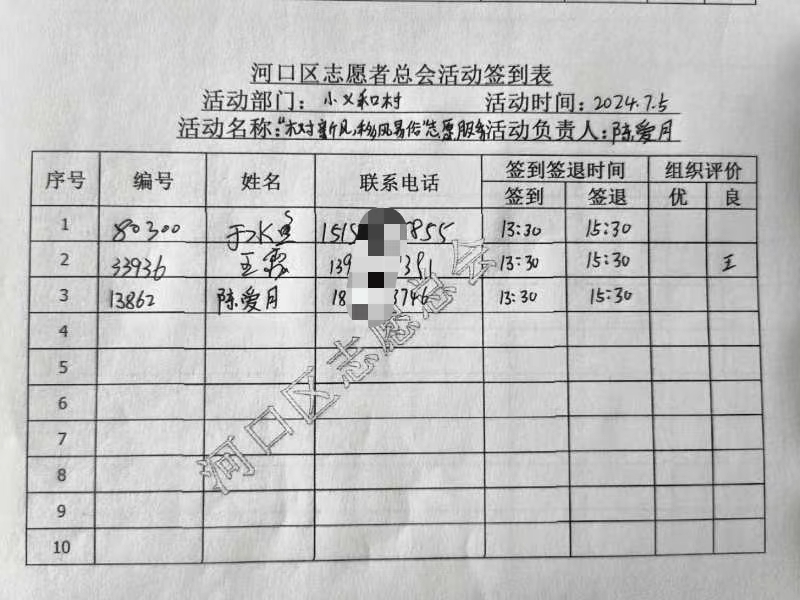 河口区志愿者总会活动签到表
活动部门：小义和村 活动时间：2024.7.5
活动名称："树新风,移风易俗"志愿服务活动负责人：陈爱月
序号 编号 姓名 联系电话 签到签退时间 组织评价
签到 签退 优 良
1 80300 于水 1515 855 13:30 15:30
2 33936 王霞 139 391 13:30 15:30 王
3 13862 陈爱月 18 3746 13:30 15:30
4
5
6
7
8
9
10
河口区志愿者总会